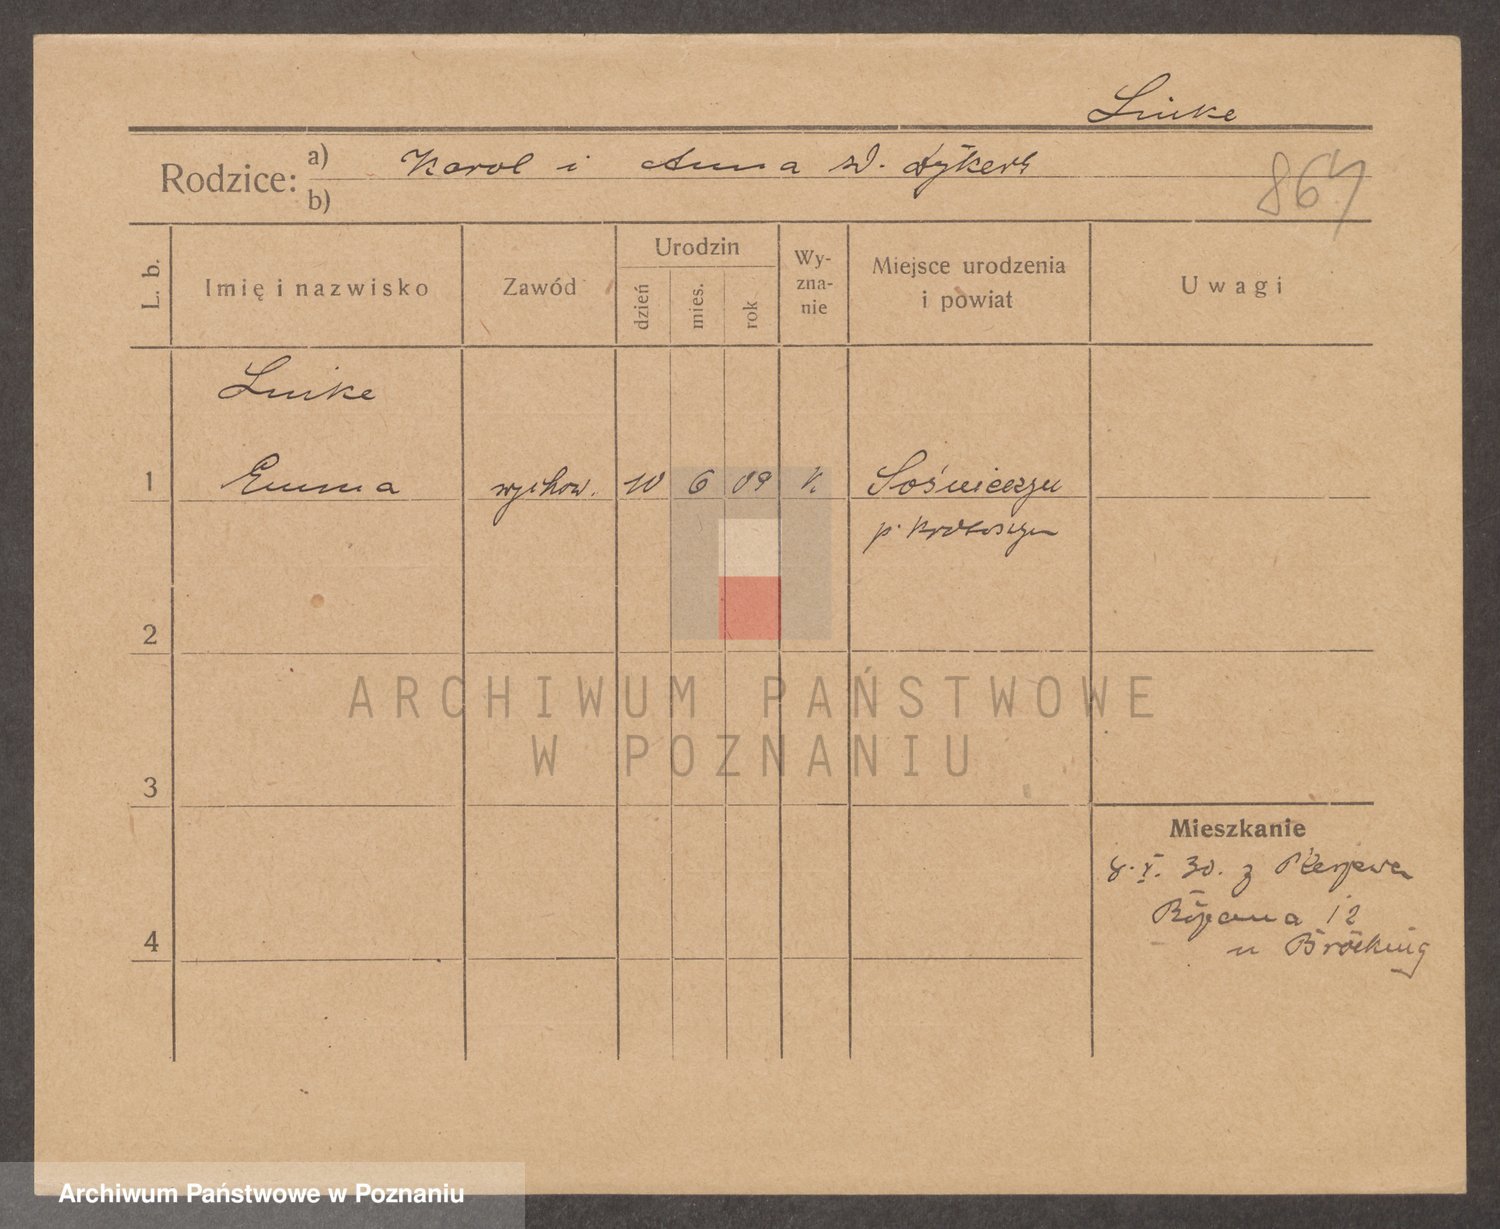 Linke
Rodzice: a) Karol i Anna zd. Dykert
b)
864
L. b.
Imię i nazwisko
Zawód
Urodzin
dzień
mies.
rok
Wy-
zna-
nie
Miejsce urodzenia
i powiat
Uwagi
Linke
1 Emma wychow. 10 6 09 k.
p. Krotoszyn
2
3
4
Mieszkanie
8. V. 30. z
12
u Bröcking
ARCHIWUM PAŃSTWOWE
W POZNANIU
Archiwum Państwowe w Poznaniu